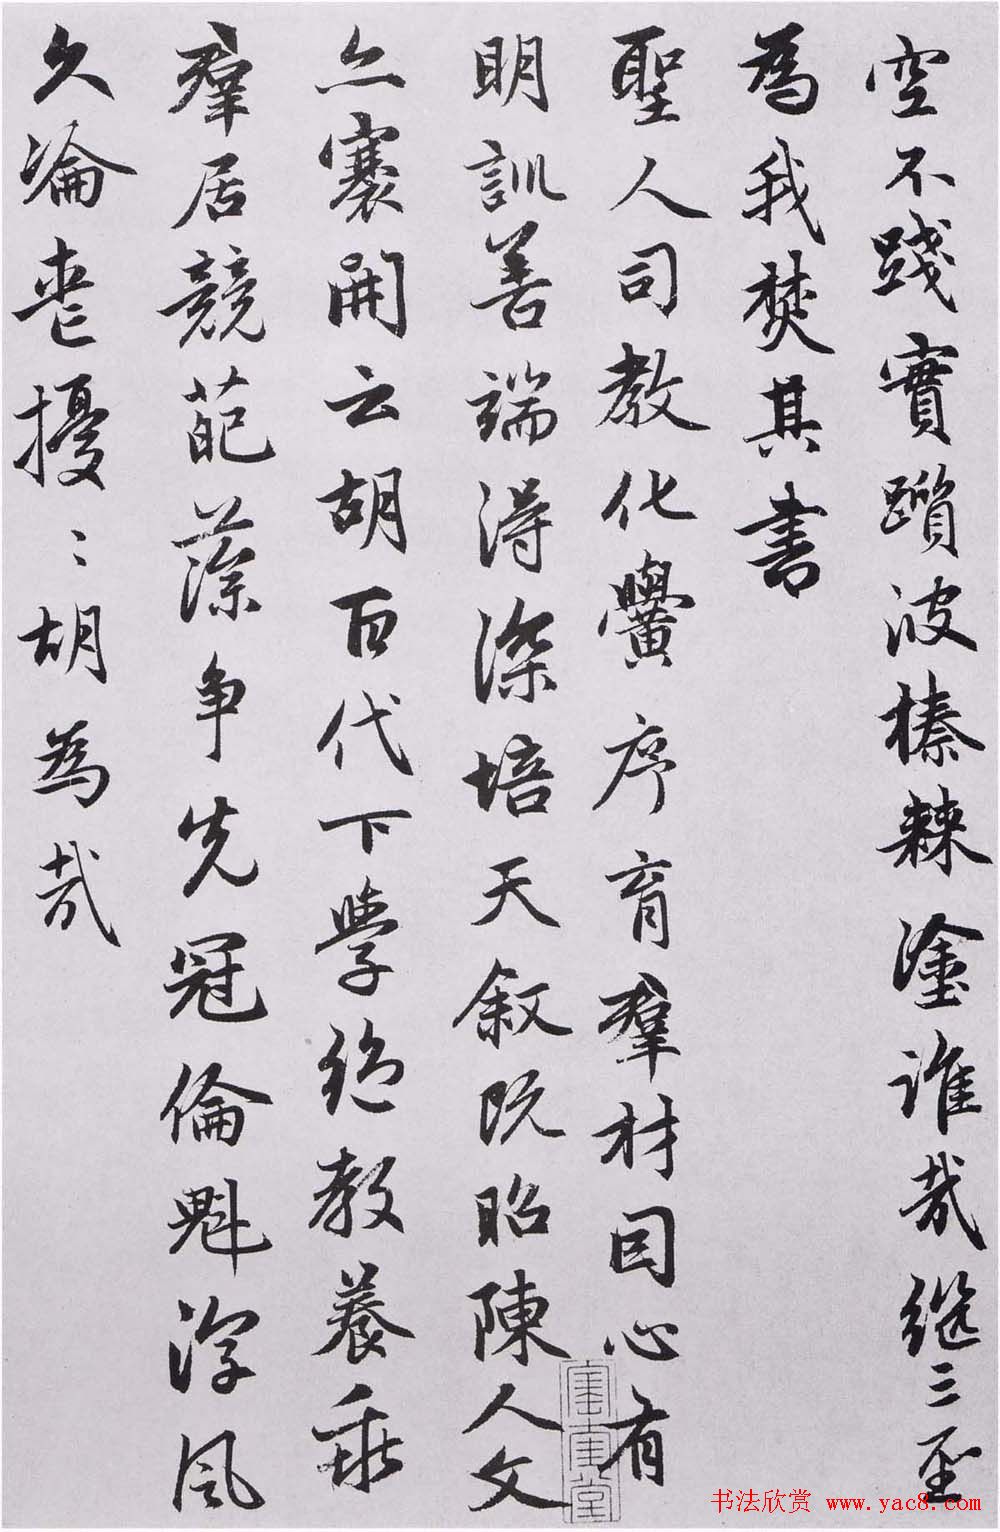 空不踐實躓彼榛棘塗誰哉繼三聖
為我焚其書
聖人司教化黌序育羣材因心有
明訓善端得深培天叙既昭陳人文
亦褰開云胡百代下學絕教養乖
羣居競葩藻争先冠倫魁淳風
久淪喪擾〻胡為哉
書法欣赏 www.yac8.com